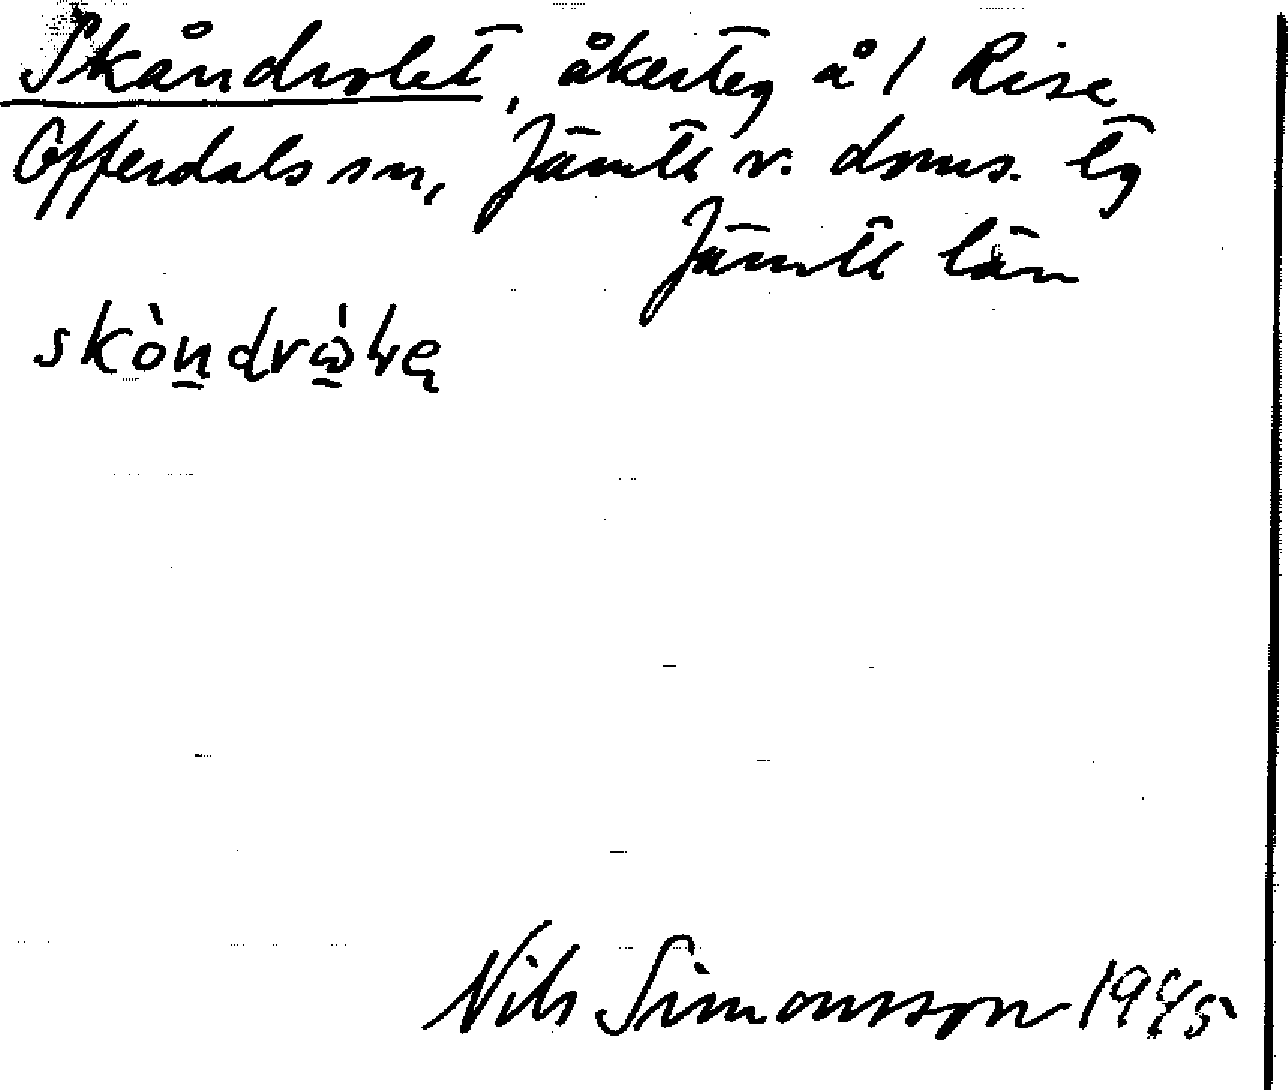 Skåndrolet, åkerteg å 1 Rise
Offerdals sn, Jämtl v. doms. tg
Jämtl län
skòn̠drὼ̠lę
Nils Simonsson 1945